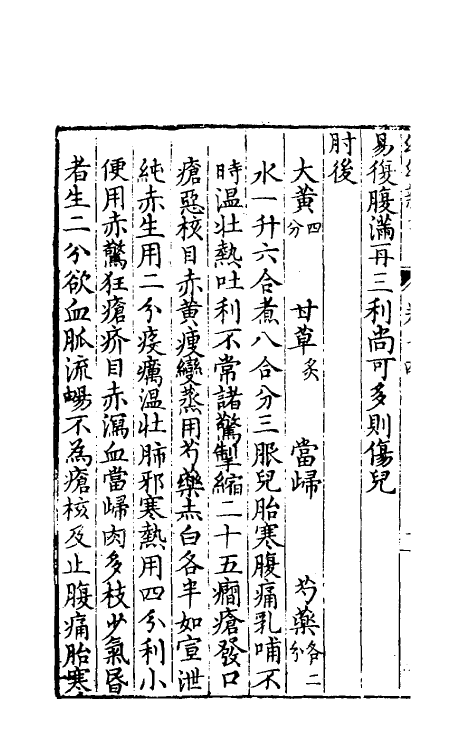 易復腹滿再三利尚可多則傷兒
肘後
大黃四分 甘草炙 當歸 芍藥各二分
水一升六合煮八合分三服兒胎寒腹痛乳哺不
時温壯熱吐利不常諸驚掣縮二十五癎瘡發口
瘡惡核目赤黃瘦變蒸用芍藥赤白各半如宣泄
純赤生用二分痎癘温壯肺邪寒熱用四分利小
便用赤驚狂瘡疥目赤瀉血當歸肉多枝少氣昏
者生二分欲血脈流暢不為瘡核及止腹痛胎寒